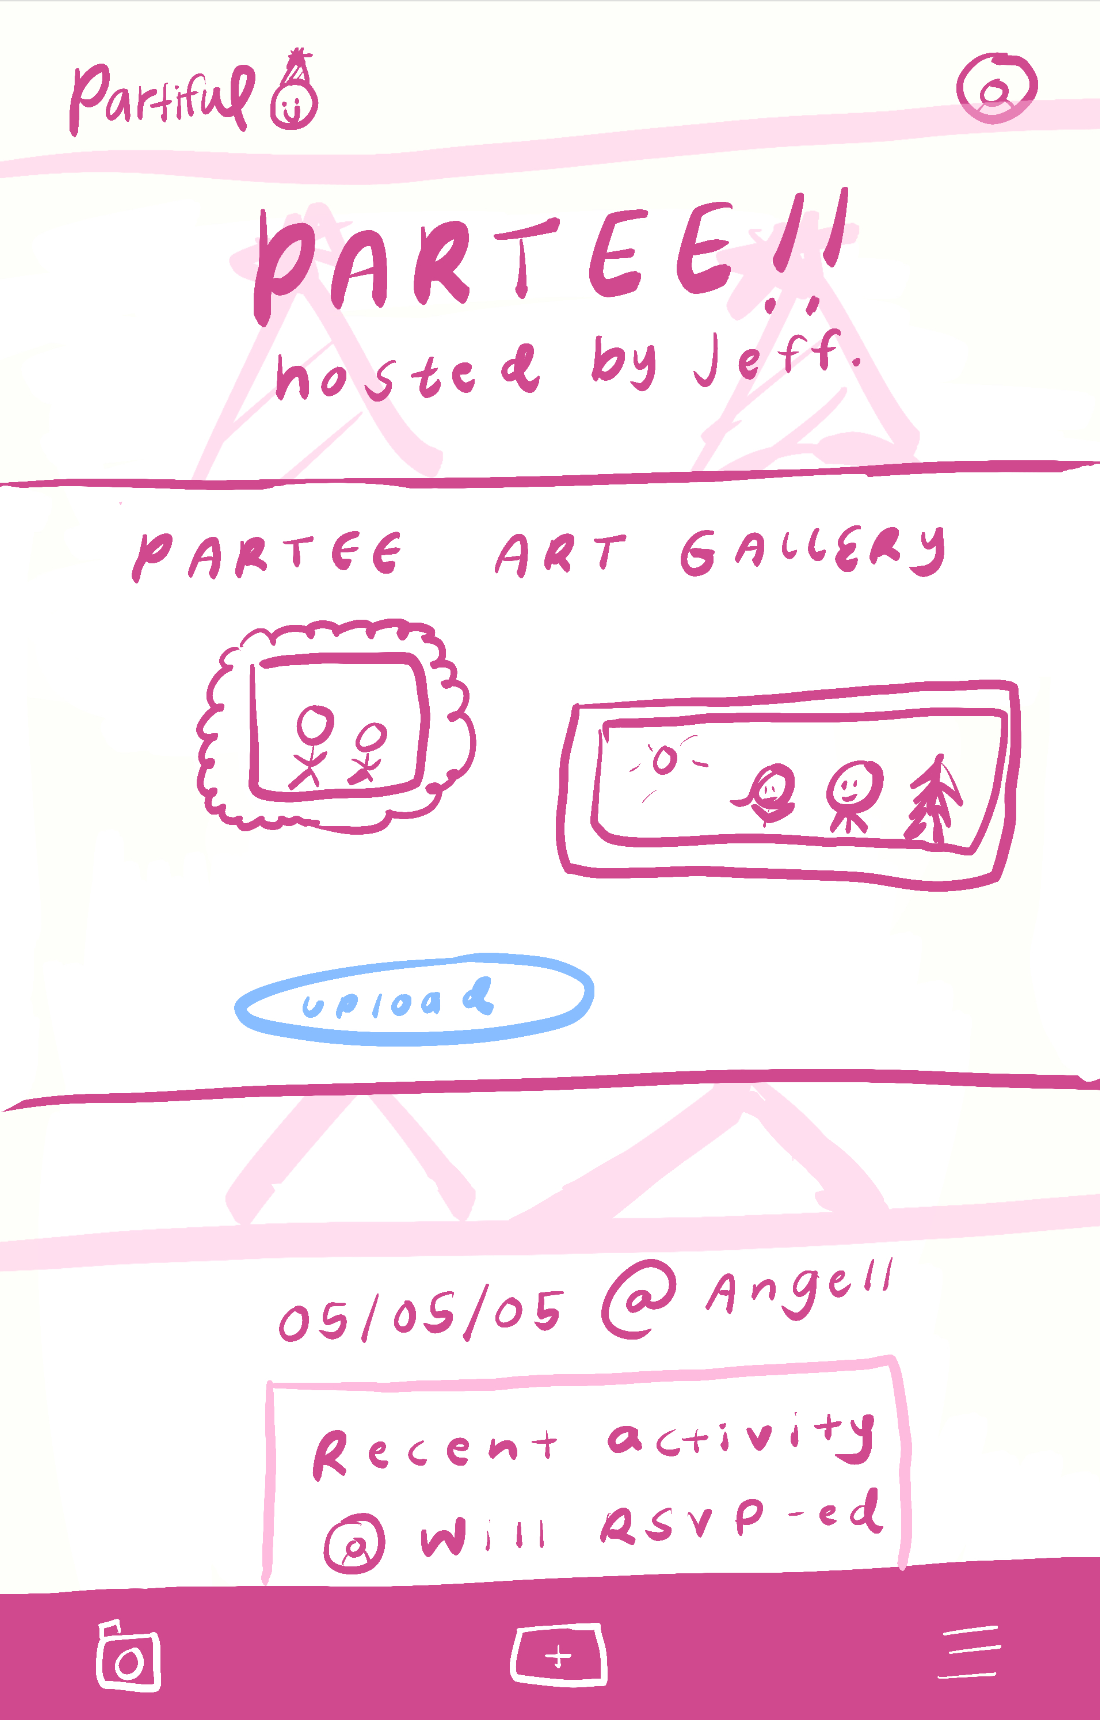 Partiful
PARTEE!!
hosted by Jeff.
PARTEE ART GALLERY
upload
05/05/05 @ Angell
Recent activity
Will RSVP-ed
+